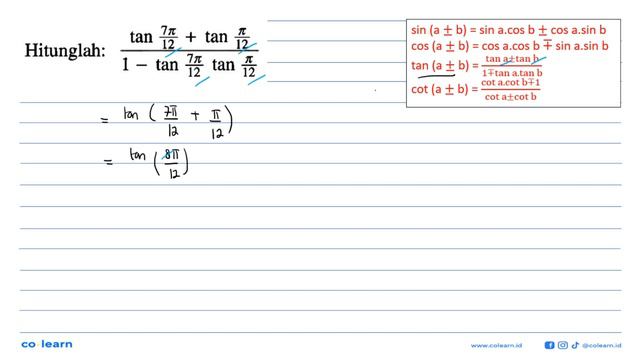 Hitunglah: (tan 7π/12 + tan π/12)/(1 − tan 7π/12 tan π/12)
sin (a ± b) = sin a.cos b ± cos a.sin b
cos (a ± b) = cos a.cos b ∓ sin a.sin b
tan (a ± b) = (tan a±tan b)/(1∓tan a.tan b)
cot (a ± b) = (cot a.cot b∓1)/(cot a±cot b)
= tan (7π/12 + π/12)
= tan (8π/12)
co learn
www.colearn.id
@colearn.id